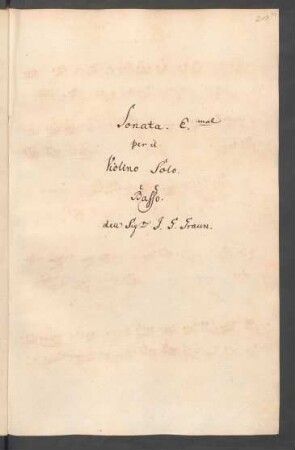 Sonata. E. mol
per il
Violino Solo.
è
Basso.
del Sigr. J. G. Graun.